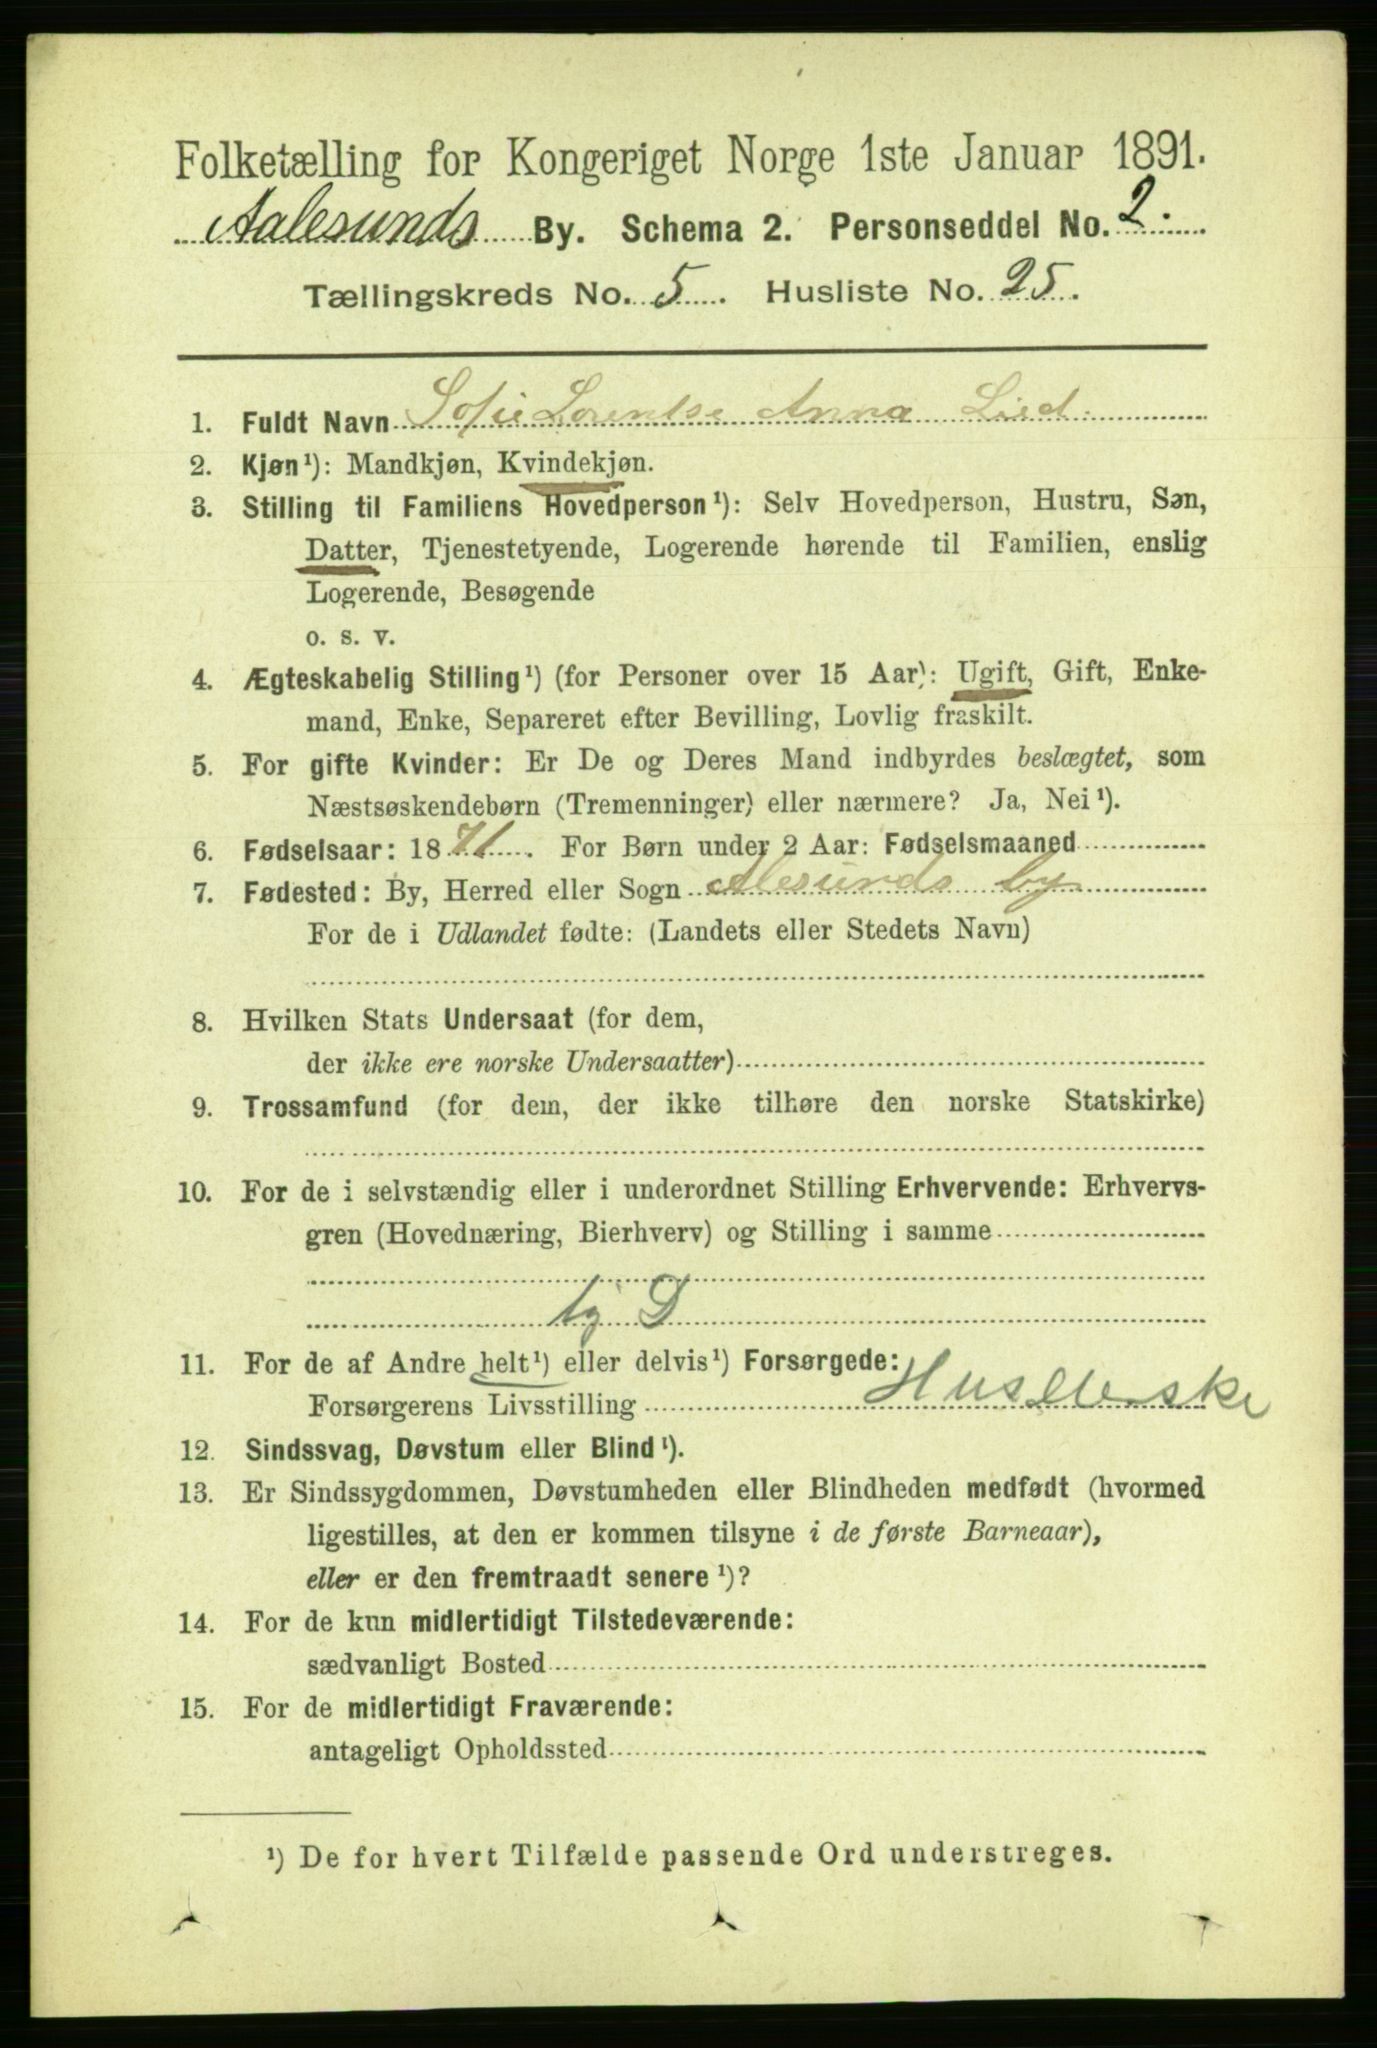 Folketælling for Kongeriget Norge 1ste Januar 1891.
Aalesunds By. Schema 2. Personseddel No. 2.
Tællingskreds No. 5. Husliste No. 25.
1. Fuldt Navn Sofie Lorentse Anna Lied
2. Kjøn¹): Mandkjøn, Kvindekjøn.
3. Stilling til Familiens Hovedperson¹): Selv Hovedperson, Hustru, Søn,
Datter, Tjenestetyende, Logerende hørende til Familien, enslig
Logerende, Besøgende
o. s. v.
4. Ægteskabelig Stilling¹) (for Personer over 15 Aar): Ugift, Gift, Enke-
mand, Enke, Separeret efter Bevilling, Lovlig fraskilt.
5. For gifte Kvinder: Er De og Deres Mand indbyrdes beslægtet, som
Næstsøskendebørn (Tremenninger) eller nærmere? Ja, Nei¹).
6. Fødselsaar: 1871. For Børn under 2 Aar: Fødselsmaaned
7. Fødested: By, Herred eller Sogn Alesunds by
For de i Udlandet fødte: (Landets eller Stedets Navn)
8. Hvilken Stats Undersaat (for dem,
der ikke ere norske Undersaatter)
9. Trossamfund (for dem, der ikke tilhøre den norske Statskirke)
10. For de i selvstændig eller i underordnet Stilling Erhvervende: Erhvervs-
gren (Hovednæring, Bierhverv) og Stilling i samme
ty D
11. For de af Andre helt¹) eller delvis¹) Forsørgede:
Forsørgerens Livsstilling
12. Sindssvag, Døvstum eller Blind¹).
13. Er Sindssygdommen, Døvstumheden eller Blindheden medfødt (hvormed
ligestilles, at den er kommen tilsyne i de første Barneaar),
eller er den fremtraadt senere¹)?
14. For de kun midlertidigt Tilstedeværende:
sædvanligt Bosted
15. For de midlertidigt Fraværende:
antageligt Opholdssted
¹) De for hvert Tilfælde passende Ord understreges.